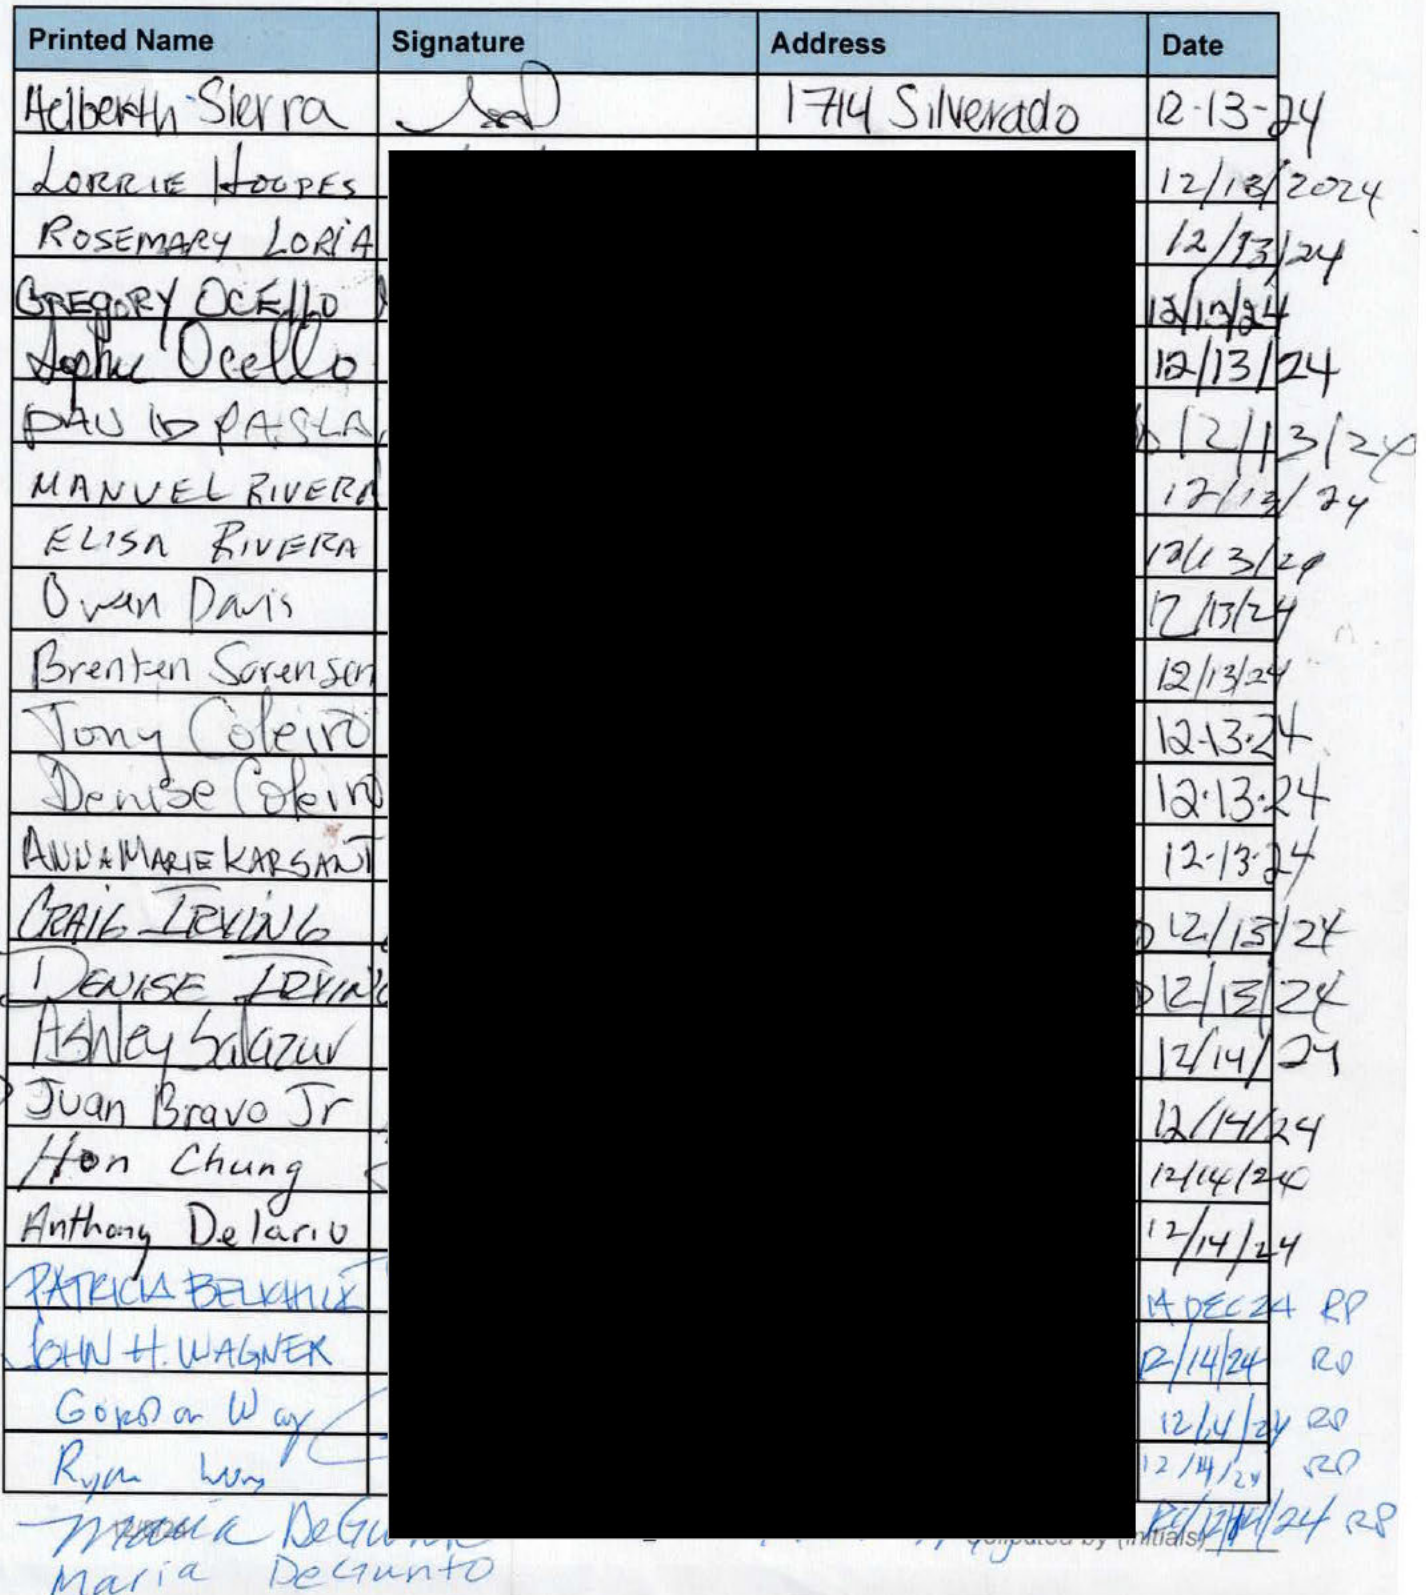 Printed Name Signature Address Date
Helberth Sierra 1714 Silverado 12-13-24
LORRIE HOOPES 12/13/2024
ROSEMARY LORIA 12/13/24
GREGORY OCELLO 12/13/24
Sophie Ocello 12/13/24
DAVID PASLA 12/13/24
MANUEL RIVERA 12/13/24
ELISA RIVERA 12/13/24
Owen Davis 12/13/24
Brenten Sorensen 12/13/24
Tony Coleiro 12-13-24
Denise Coleiro 12-13-24
ANNAMARIE KARSANT 12-13-24
CRAIG IRVING 12/13/24
DENISE IRVING 12/13/24
Ashley Salazar 12/14/24
Juan Bravo Jr 12/14/24
Hon Chung 12/14/24
Anthony Delario 12/14/24
PATRICIA 14 DEC 24 RP
JOHN H. WAGNER 12/14/24 RP
Gordon Way 12/14/24 RP
Ryan 12/14/24 RP
Maria /24 RP
by (initials)
Maria DeGunto